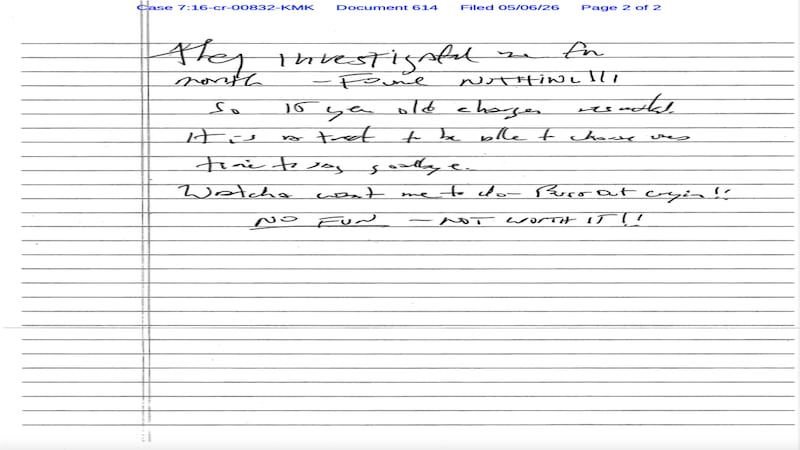 Case 7:16-cr-00832-KMK Document 614 Filed 05/06/26 Page 2 of 2
they investigated me for
month - Found NOTHING!!!
So 15 year old charges resulted.
It is a treat to be able to choose ones
time to say goodbye.
Watcha want me to do - Burst out cryin!!
NO FUN - NOT WORTH IT!!